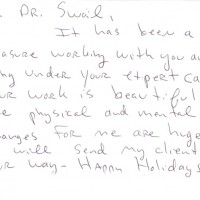 Dr. Swail,
It has been a
asure working with you an
ng under your expert ca
ur work is beautiful
e physical and mental
anges for me are huge
will send my client
ur way - Happy Holidays